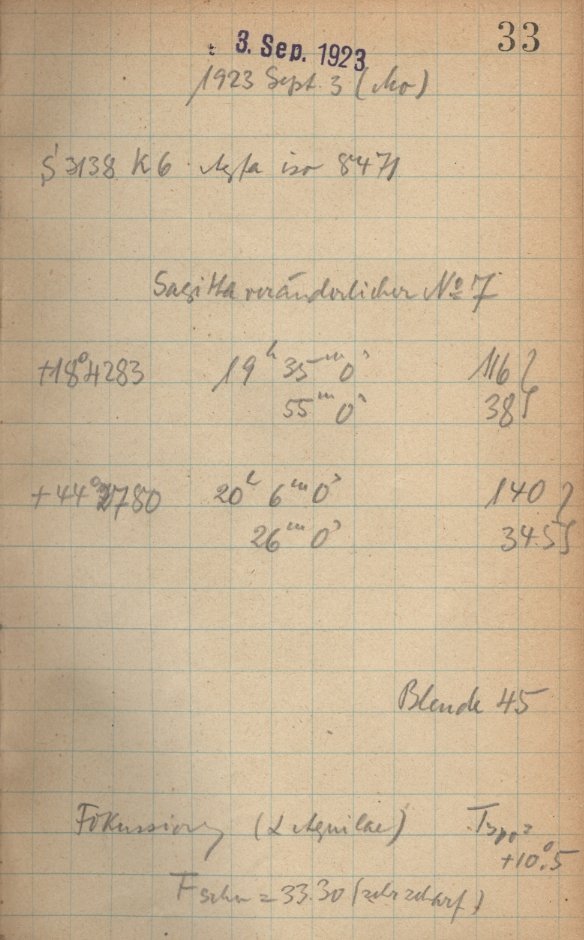 33
3. Sep. 1923
1923 Sept. 3 (Mo)
S 3138 K6 Agfa iso 8471
Sagitta veränderlicher No 7
+18° 4283 19h 35m 0s 116 }
55m 0s 38 }
+44° 2780 20h 6m 0s 140 }
26m 0s 34.5 }
Blende 45
Fokussierung (α Aquilae)
+10°.5
= 33.30 (sehr scharf)